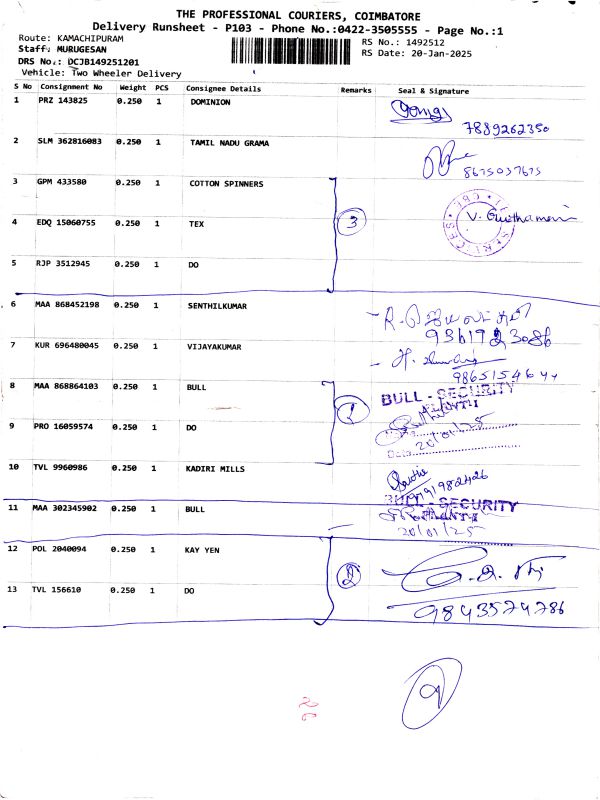 THE PROFESSIONAL COURIERS, COIMBATORE
Delivery Runsheet - P103 - Phone No.:0422-3505555 - Page No.:1
Route: KAMACHIPURAM
RS No.: 1492512
Staff: MURUGESAN
RS Date: 20-Jan-2025
DRS No.: DCJB149251201
Vehicle: Two Wheeler Delivery
S No Consignment No Weight PCS Consignee Details Remarks Seal & Signature
1 PRZ 143825 0.250 1 DOMINION
7889262350
2 SLM 362816083 0.250 1 TAMIL NADU GRAMA
8675037673
3 GPM 433580 0.250 1 COTTON SPINNERS
4 EDQ 15060755 0.250 1 TEX 3
5 RJP 3512945 0.250 1 DO
6 MAA 868452198 0.250 1 SENTHILKUMAR
7 KUR 696480045 0.250 1 VIJAYAKUMAR
8 MAA 868864103 0.250 1 BULL BULL - SECURITY
UNIT-I
9 PRO 16059574 0.250 1 DO
Date 20/01/25
10 TVL 9960986 0.250 1 KADIRI MILLS
11 MAA 302345902 0.250 1 BULL BULL - SECURITY
UNIT-I
20/01/25
12 POL 2040094 0.250 1 KAY YEN 2
13 TVL 156610 0.250 1 DO
9843574786
9